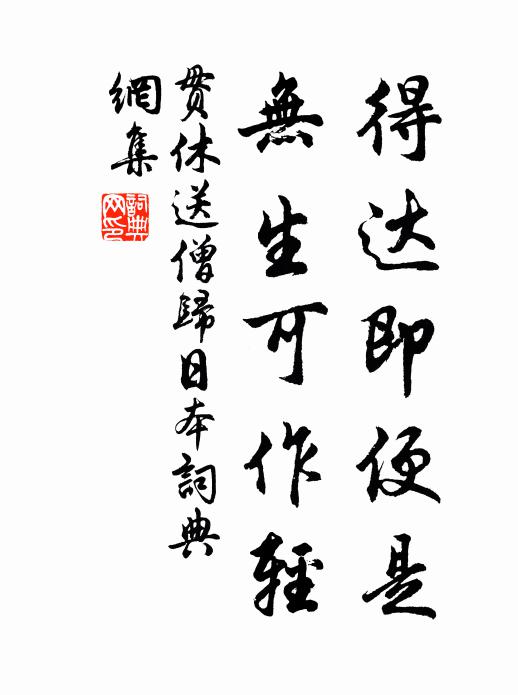 得达即便是
無生可作輕
贯休送僧歸日本詞典
網集
詞典
网印